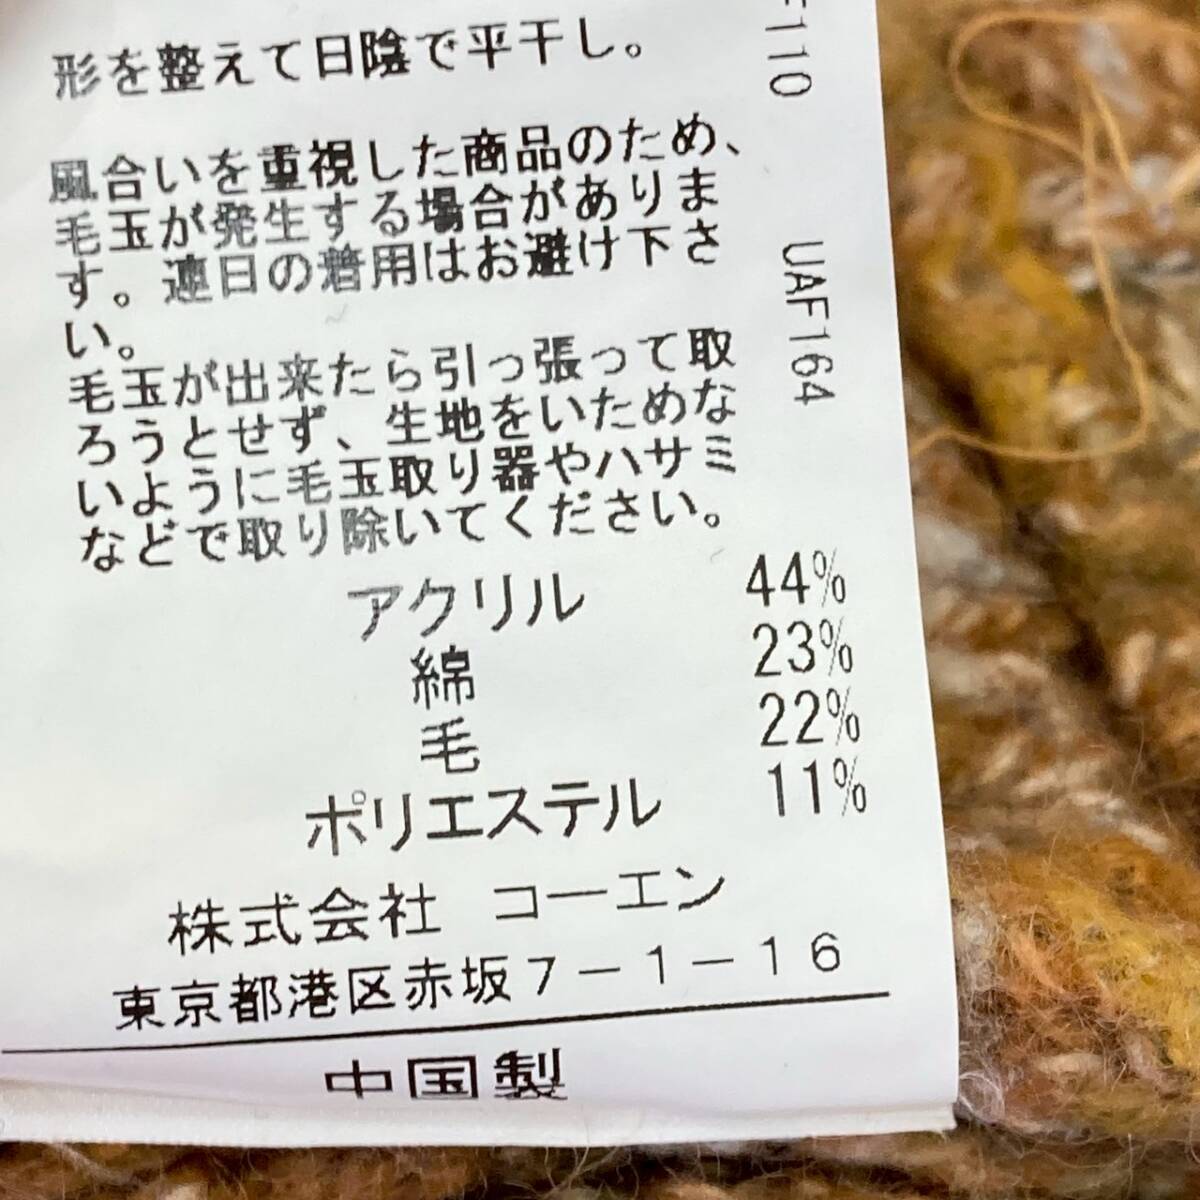 形を整えて日陰で平干し。
風合いを重視した商品のため、
毛玉が発生する場合がありま
す。連日の着用はお避け下さ
い。
毛玉が出来たら引っ張って取
ろうとせず、生地をいためな
いように毛玉取り器やハサミ
などで取り除いてください。
アクリル 44%
綿 23%
毛 22%
ポリエステル 11%
株式会社 コーエン
東京都港区赤坂7-1-16
中国製
F110
UAF164